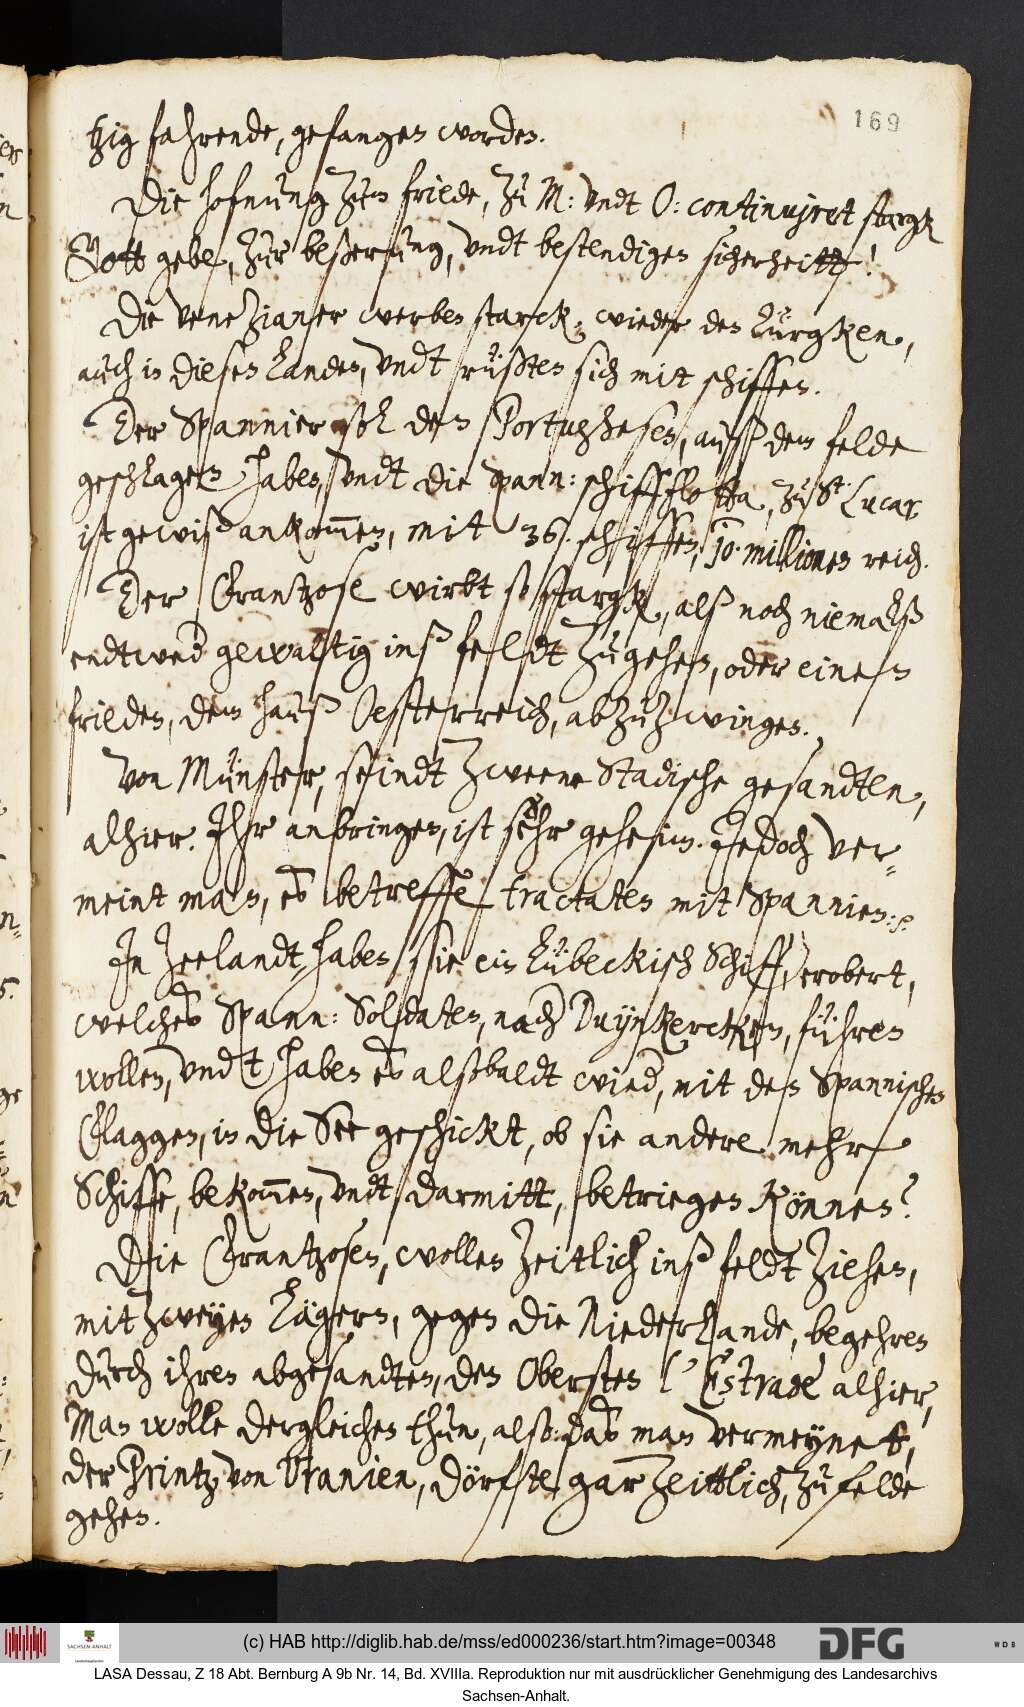 169
tzig fahrende, gefangen worden.
Die hofnung zum friede, zu M: undt O: continujret stargk
Gott gebe, zur beßerung, undt bestendigen sicherheitt!
Die Venezianer werben starck, wieder den Türgken,
auch in diesen Landen, undt rüsten sich mit schiffen.
Der Spannier soll den Portughesen, auß dem felde
geschlagen haben, undt die spann: schiffflotta, zu St. Lucar
ist gewiß ankom̅en, mit 36. schiffen, 10. millionen reich.
Der Frantzose wirbt so stargk, alß noch niemalß
endtweder gewaltig inß feldt zu gehen, oder einen
frieden, dem hauß Oesterreich, abzuzwingen.
Von Münster, seindt zweene Stadische gesandten,
alhier. Ihr anbringen, ist sehr geheim. Jedoch ver-
meint man, es betreffe tractaten mit Spannien:
In Zeelandt, haben sie ein Lübeckisch Schiff, erobert,
welches Spann: Soldaten, nach Duynkercken, führen
wollen, undt haben es alßbaldt wieder, mit den Spannischen
Flaggen, in die See geschickt, ob sie andere mehr
Schiffe, bekom̅en, undt darmitt, betriegen können?
Die Frantzosen, wollen zeitlich inß feldt ziehen,
mit zweyen Lägern, gegen die Niederlande, begehren
durch ihren abgesandten, den Obersten l'Estrade alhier,
Man wolle dergleichen thun, also: das man vermeynet,
der Printz von Uranien, dörfste gar zeittlich, zu felde
gehen.
(c) HAB http://diglib.hab.de/mss/ed000236/start.htm?image=00348
SACHSEN-ANHALT
DFG
WDB
LASA Dessau, Z 18 Abt. Bernburg A 9b Nr. 14, Bd. XVIIIa. Reproduktion nur mit ausdrücklicher Genehmigung des Landesarchivs
Sachsen-Anhalt.